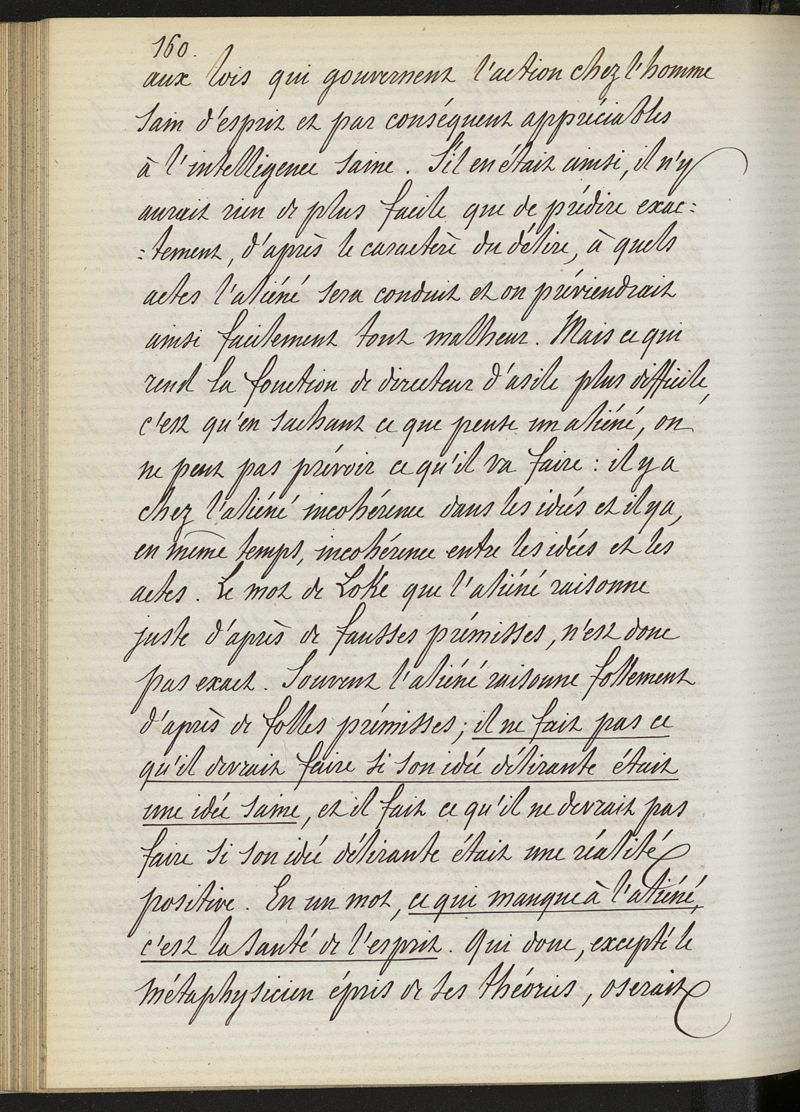 160.
aux lois qui gouvernent l'action chez l'homme
sain d'esprit et par conséquent appréciables
à l'intelligence saine. S'il en était ainsi, il n'y
aurait rien de plus facile que de prédire exac=
=tement, d'après le caractère du délire, à quels
actes l'aliéné sera conduit et on préviendrait
ainsi facilement tout malheur. Mais ce qui
rend la fonction de directeur d'asile plus difficile,
c'est qu'en sachant ce que pense un aliéné, on
ne peut pas prévoir ce qu'il va faire : il y a
chez l'aliéné incohérence dans les idées et il y a,
en même temps, incohérence entre les idées et les
actes. Le mot de Loke que l'aliéné raisonne
juste d'après de fausses prémisses, n'est donc
pas exact. Souvent l'aliéné raisonne follement
d'après de folles prémisses; il ne fait pas ce
qu'il devrait faire si son idée délirante était
une idée saine, et il fait ce qu'il ne devrait pas
faire si son idée délirante était une réalité
positive. En un mot, ce qui manque à l'aliéné,
c'est la santé de l'esprit. Qui donc, excepté le
métaphysicien épris de ses théories, oserait